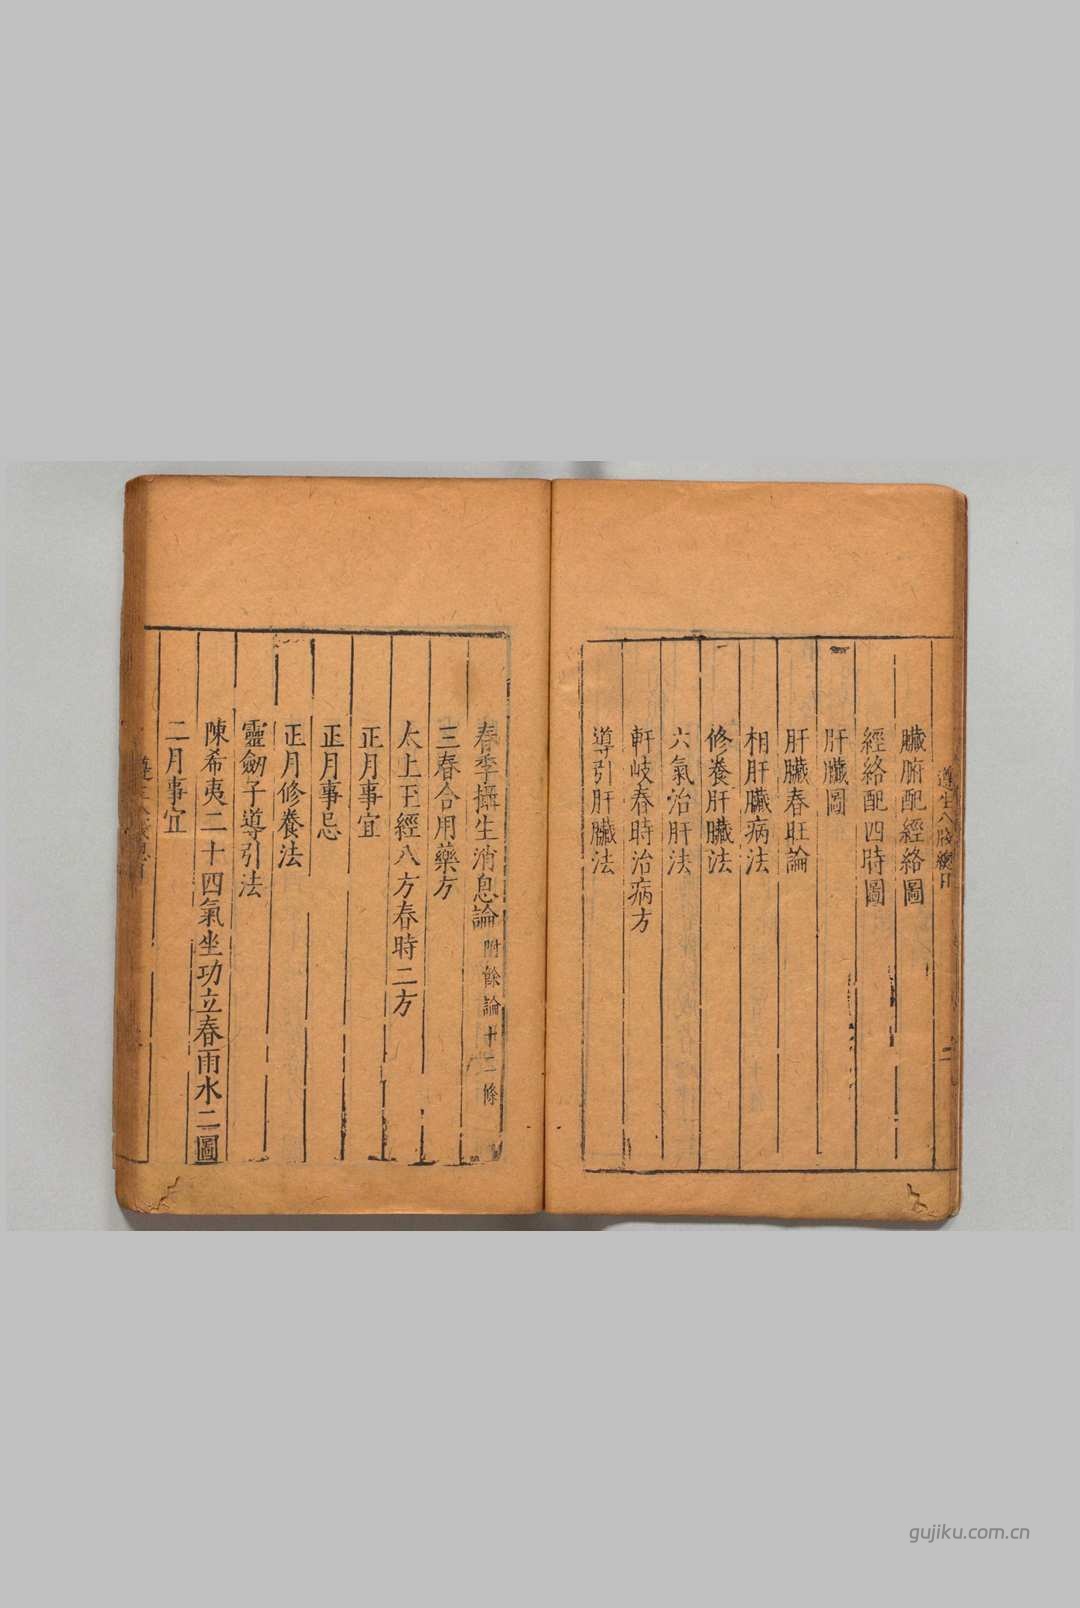 遵生八牋總目
二
臟腑配經絡圖
經絡配四時圖
肝臟圖
肝臟春旺論
相肝臟病法
修養肝臟法
六氣治肝法
軒岐春時治病方
導引肝臟法
春季攝生消息論 附餘論十二條
三春合用藥方
太上玉經八方春時二方
正月事宜
正月事忌
正月修養法
靈劒子導引法
陳希夷二十四氣坐功立春雨水二圖
二月事宜
gujiku.com.cn